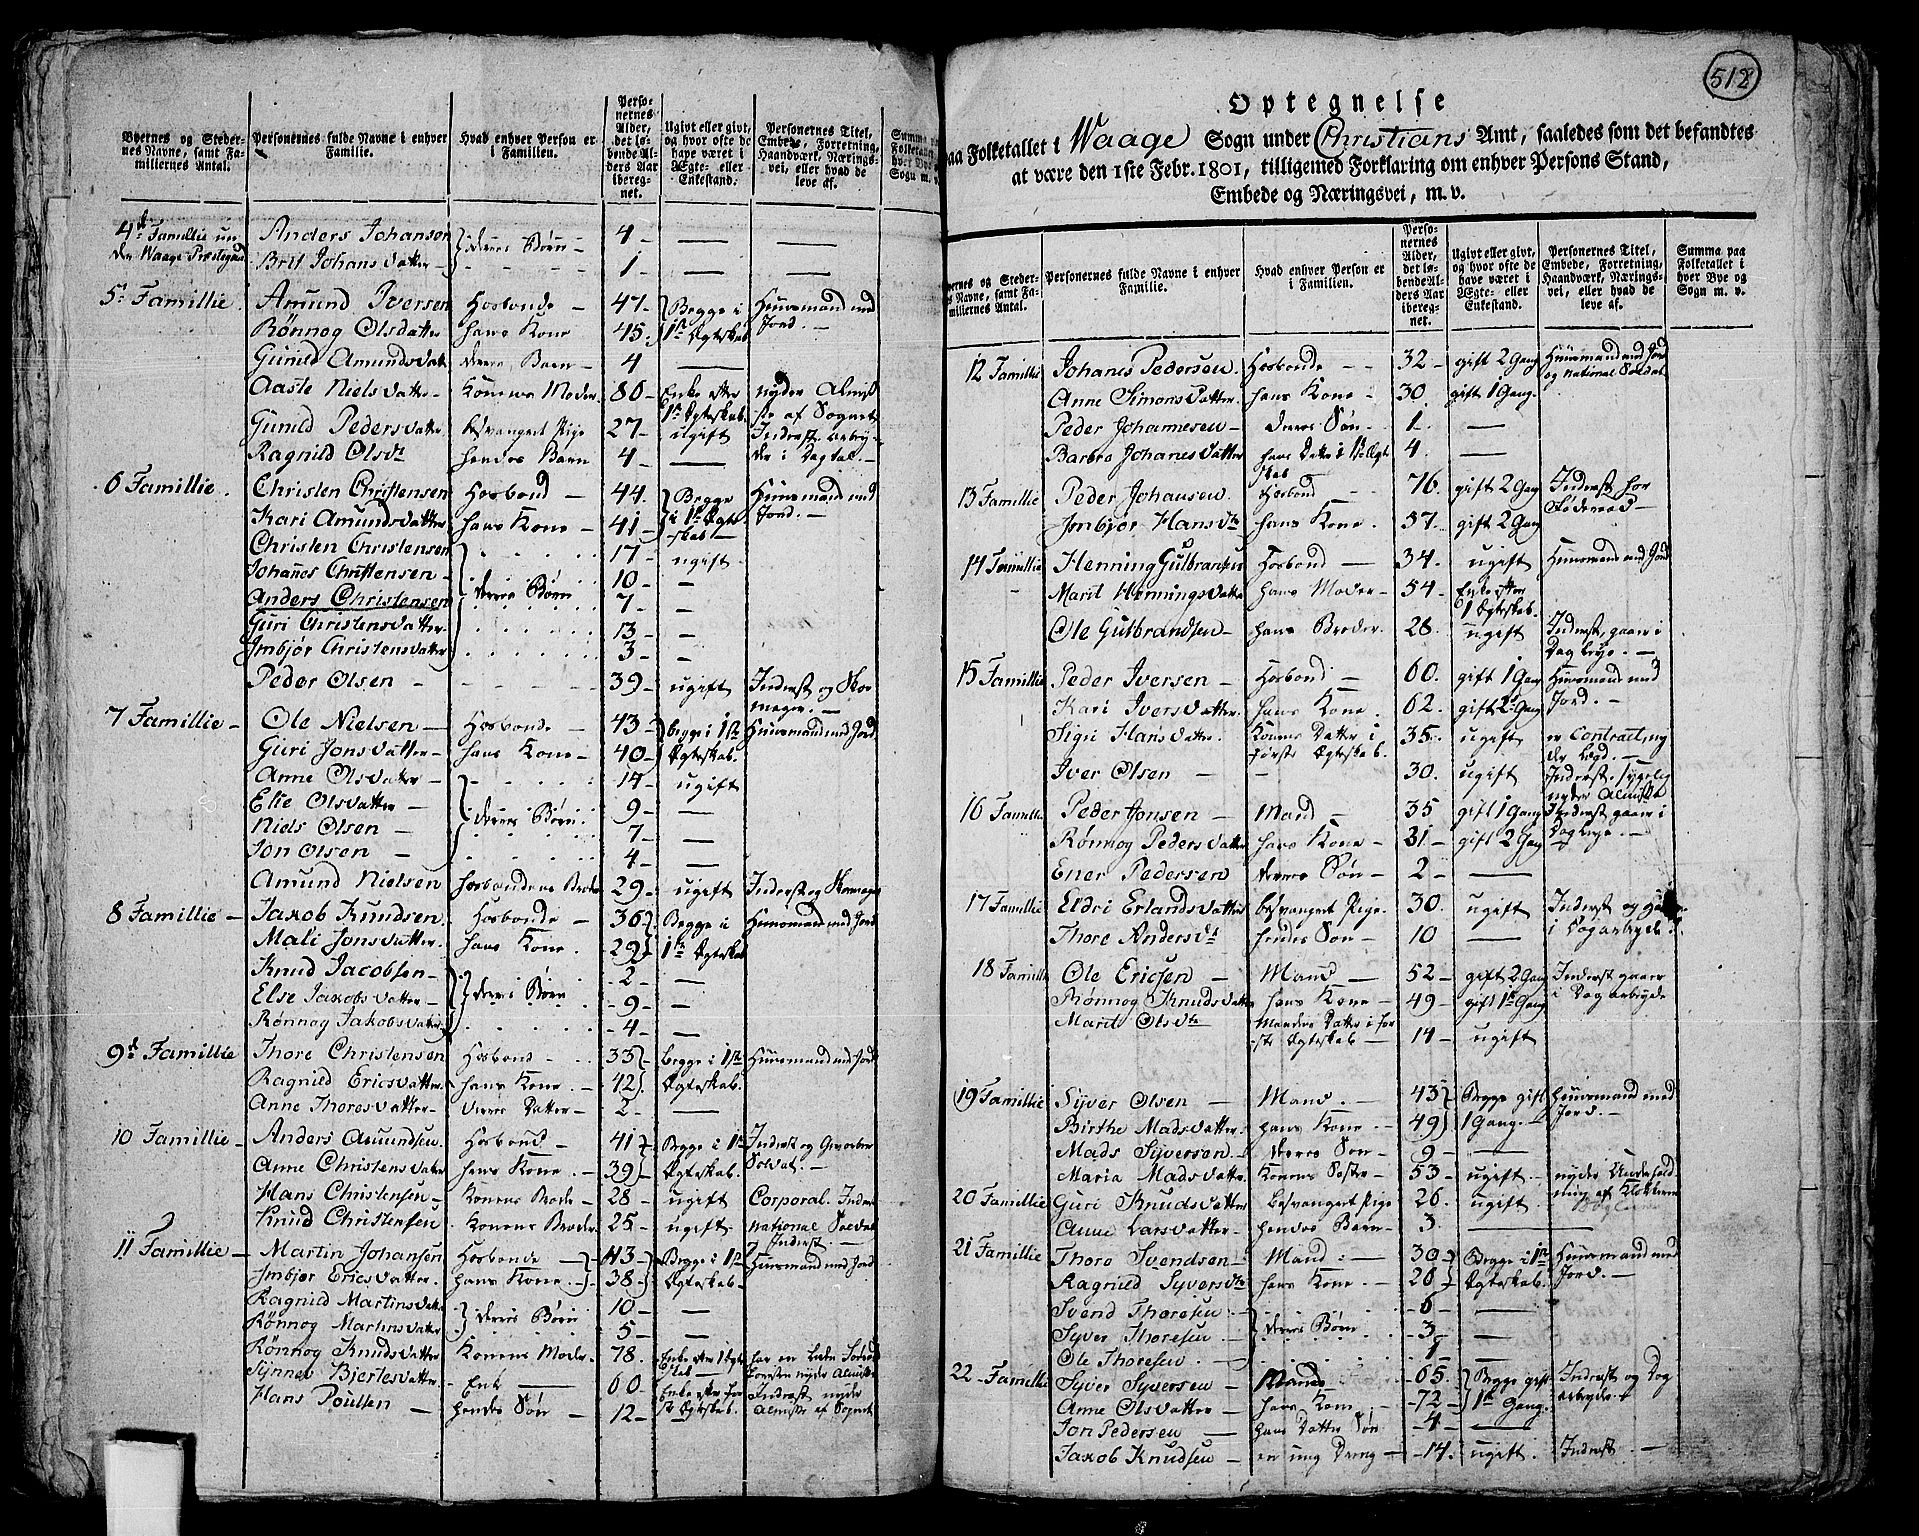 Byernes og Steder-
nes Navne, samt Fa-
miliernes Antal.
Personernes fulde Navne i enhver
Familie.
Hvad enhver Person er
i Familien.
Perso-
nernes
Alder,
det lø-
bende Al-
ders Aar
iberegnet.
Ugivt eller givt,
og hvor ofte de
have været i
Ægte- eller
Enkestand.
Personernes Titel,
Embede, Forretning,
Haandværk, Nærings-
vei, eller hvad de
leve af.
4de Famillie un-
der Waage Præstegaard
Anders Johansen } deres Børn 4 — —
Brit Johansdatter 1 — —
5te Famillie. Amund Iversen Hosbonde 47 Begge i Huusmand med
Rønnog Olsdatter hans Kone 45 1ste Ægteskab Jord.
Gunild Amundsdatter deres Barn 4 —
Aaste Nielsdatter Konens Moder 80 Enke efter nyder Almis-
1ste Ægteskab se af Sognet
Gunild Pedersdatter besvangret Pige 27 ugift Inderst arbey-
Ragnild Olsdr hendes Barn 4 — der i Dagtal.
6 Famillie. Christen Christensen Hosbond 44 Begge Huusmand med
Kari Amundsdatter hans Kone 41 i 1ste Ægte- Jord.
skab
Christen Christensen 17 ugift
Johanes Christensen 10 —
Anders Christensen } deres Børn 7 —
Guri Christensdatter 13 —
Imbjør Christensdatter 3 —
Peder Olsen — 39 ugift Inderst og Sko-
mager.
7 Famillie Ole Nielsen Hosbonde 43 begge i 1ste Huusmand med Jord
Guri Jonsdatter hans Kone 40 Ægteskab.
Anne Olsdatter 14 ugift
Elie Olsdatter } deres Børn 9 —
Niels Olsen 7 —
Jon Olsen 4 —
Amund Nielsen Hosbondens Broder 29 ugift Inderst og Skomager
8 Famillie Jakob Knudsen Hosbonde 36 Begge i Huusmand med Jord
Mali Jonsdatter hans Kone 29 1ste Ægteskab
Knud Jacobsen 2 —
Else Jakobsdatter } deres Børn 9 —
Rønnog Jakobsdatter 4 —
9de Famillie Thore Christensen Hosbond 33 begge i 1ste Huusmand med Jord
Ragnild Ericsdatter hans Kone 42 Ægteskab.
Anne Thoresdatter deres Datter 2 —
10 Famillie Anders Amundsen Hosbond 41 Begge i 1ste Inderst og Gevorben
Anne Christensdatter hans Kone 39 Ægteskab. Soldat.
Hans Christensen Konens Broder 28 ugift Corporal Inderst
Knud Christensen Konens Broder 25 ugift National Soldat
og Inderst
11 Famillie Martin Johansen Hosbonde 43 Begge i 1ste Huusmand med Jord
Imbjør Ericsdatter hans Kone 38 Ægteskab.
Ragnild Martinsdatter } deres Børn 10 —
Rønnog Martinsdatter 5 —
Rønnog Knudsdatter Konens Moder 78 Enke efter 1 Ægte-
skab
Synnev Bjertesdatter Enke 60 Enke efter før- Inderst nyder
Hans Poulsen hendes Søn 12 ste Ægteskab. Almisse af Sognet
512
Optegnelse
paa Folketallet i Waage Sogn under Christians Amt, saaledes som det befandtes
at være den 1ste Febr. 1801, tilligemed Forklaring om enhver Persons Stand,
Embede og Næringsvei, m. v.
Personernes fulde Navne i enhver
Familie.
Hvad enhver Person er
i Familien.
Perso-
nernes
Alder,
det lø-
bende Al-
ders Aar
ibereg-
net.
Ugivt eller givt,
og hvor ofte de
have været i
Ægte- eller
Enkestand.
Personernes Titel,
Embede, Forretning,
Haandværk, Nærings-
vei, eller hvad de
leve af.
Summa paa
Folketallet i
hver Bye og
Sogn m. v.
12 Famillie Johanes Pedersen Hosbonde 32 gift 2 Gang Huusmand med Jord
og national Soldat
Anne Simonsdatter hans Kone 30 gift 1 Gang.
Peder Johannesen deres Søn 1 —
Barbro Johanesdatter hans Datter i 1ste Ægte- 4 —
skab
13 Famillie Peder Johansen Hosbond 76 gift 2 Gang Inderst har
Imbjør Hansdtr hans Kone 57 gift 2 Gang Føderaad
14 Famillie Henning Gulbransen Hosbond 34 ugift Huusmand med Jord
Marit Henningsdatter hans Moder 54 Enke efter
1 Ægteskab
Ole Gulbrandsen hans Broder 28 ugift Inderst, gaaer i
Dagleye.
15 Famillie Peder Iversen Hosbond 60 gift 1 Gang Huusmand med
Kari Iversdatter hans Kone 62 gift 2 Gang Jord.
Sigri Hansdatter Konens Datter i 35 ugift er Contract, ny
første Ægteskab. der Legd.
Iver Olsen — 30 ugift Inderst, sygelig
nyder Almisse
16 Famillie Peder Jonsen Mand 35 gift 1 Gang Inderst gaaer i
Rønnog Pedersdatter hans Kone 31 gift 2 Gang Dagleye.
Ener Pedersen deres Søn 2 —
17 Famillie Eldri Erlandsdatter besvangret Pige 30 ugift Inderst og
Thore Andersdr hendes Søn 10 — i Dagarbeyde
18 Famillie Ole Ericsen Mand 52 gift 2 Gang Inderst gaaer
Rønnog Knudsdatter hans Kone 49 gift 1 Gang i Dagarbeyde
Marit Olsdtr Mandens Datter i før-
ste Ægteskab 14 ugift
19 Famillie Syver Olsen Mand 43 Begge gift Huusmand med
Birthe Madsdatter hans Kone 49 1 Gang. Jord.
Mads Syversen deres Søn 9 —
Maria Madsdatter Konens Søster 53 ugift nyder Underhold-
20 Famillie Guri Knudsdatter besvangret Pige 26 ugift ning af Klokkeren
Anne Larsdatter hendes Barn 3 —
21 Famillie Thore Svendsen Mand 30 Begge i 1ste Huusmand med
Ragnild Syversdtr hans Kone 26 Ægteskab. Jord.
Svend Thoresen 6 —
Syver Thoresen } deres Børn 3 —
Ole Thoresen 1 —
22 Famillie Syver Syversen Mand 65 Begge gift Inderst og Dag
Anne Olsdatter hans Kone 72 1ste Gang. arbeyder
Jon Pedersen hans Datter Søn 4 —
Jakob Knudsen en ung Dreng 14 ugift Inderst